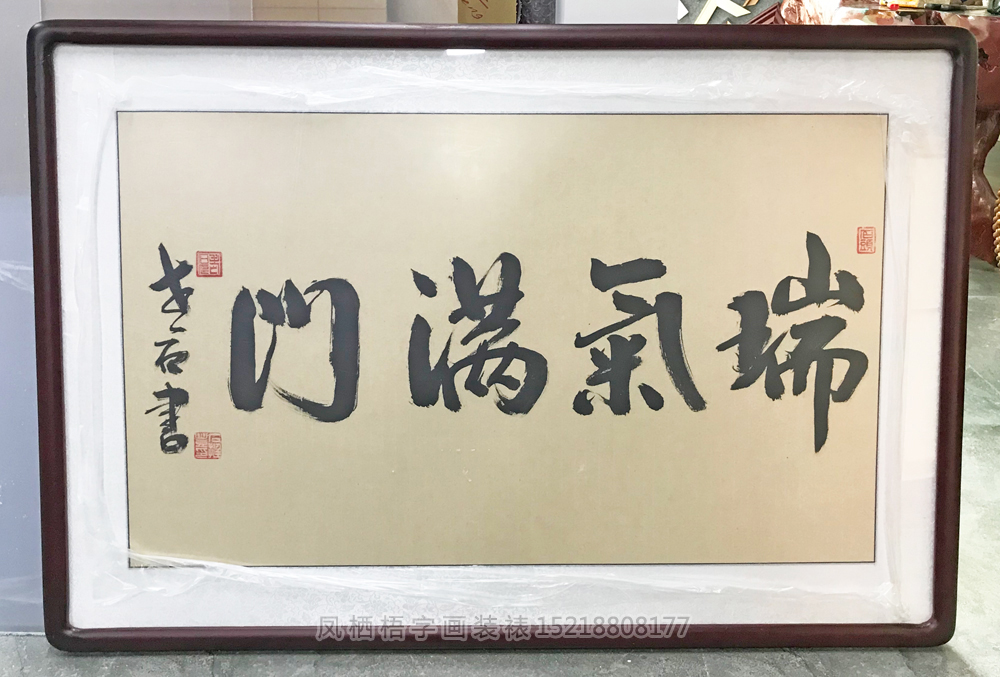 瑞氣滿門
老石書
凤栖梧字画装裱15218808177